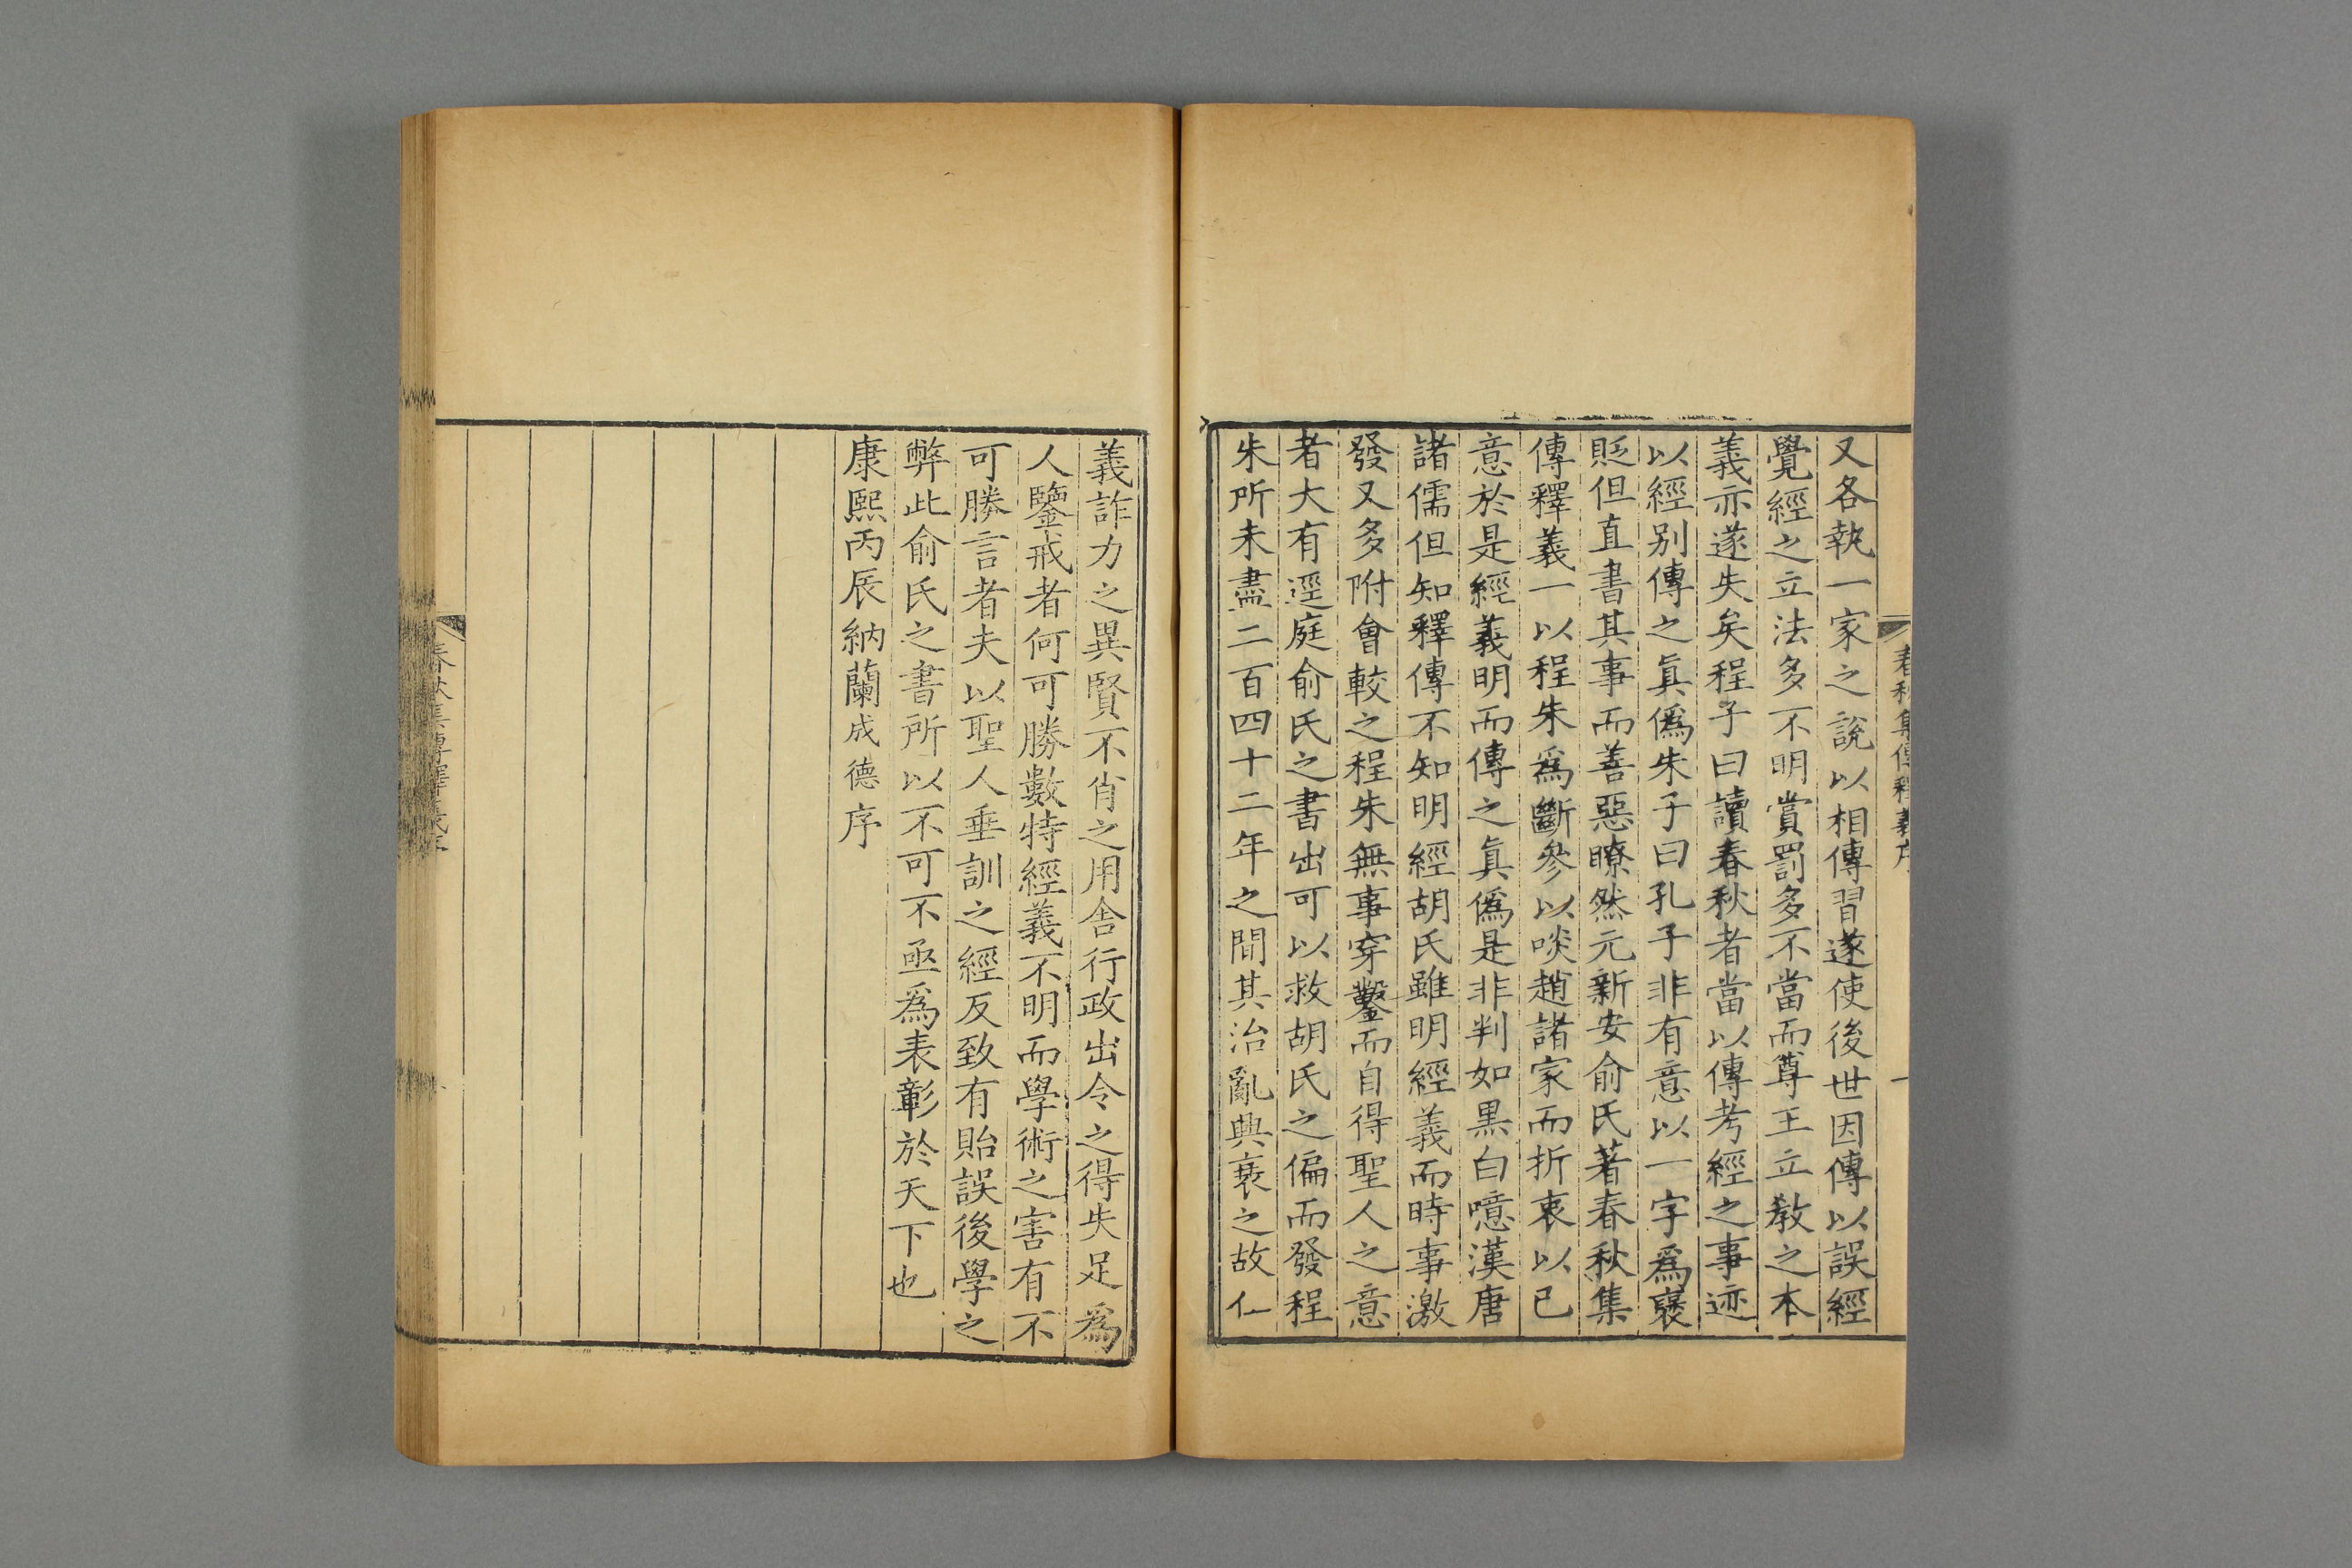 春秋集傳釋義序
一
又各執一家之說以相傳習遂使後世因傳以誤經
覺經之立法多不明賞罰多不當而尊王立教之本
義亦遂失矣程子曰讀春秋者當以傳考經之事迹
以經别傳之眞僞朱子曰孔子非有意以一字爲襃
貶但直書其事而善惡瞭然元新安俞氏著春秋集
傳釋義一以程朱爲斷參以啖趙諸家而折衷以已
意於是經義明而傳之眞僞是非判如黒白噫漢唐
諸儒但知釋傳不知明經胡氏雖明經義而時事激
發又多附會較之程朱無事穿鑿而自得聖人之意
者大有逕庭俞氏之書出可以救胡氏之偏而發程
朱所未盡二百四十二年之間其治亂興衰之故仁
義詐力之異賢不肖之用舍行政出令之得失足爲
人鑒戒者何可勝數特經義不明而學術之害有不
可勝言者夫以聖人垂訓之經反致有貽誤後學之
弊此俞氏之書所以不可不亟爲表彰於天下也
康熙丙辰納蘭成德序
春秋集傳釋義序